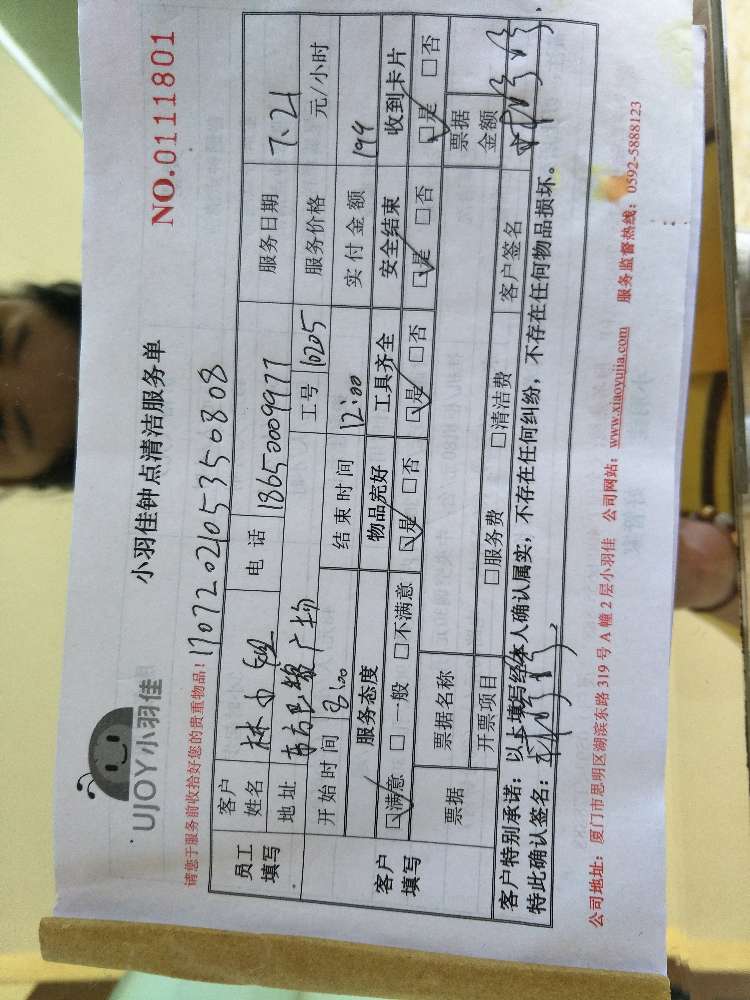 UJOY小羽佳
小羽佳钟点清洁服务单
NO.0111801
请您于服务前收拾好您的贵重物品！
170720210535 0808
员工填写
客户姓名 林小 电话 18650009977 服务日期 7.21
地址 东方巴黎广场 工号 10205 服务价格 元/小时
开始时间 8:00 结束时间 12:00 实付金额 144
客户填写
服务态度 物品完好 工具齐全 安全结束 收到卡片
☑满意 □一般 □不满意 ☑是 □否 ☑是 □否 ☑是 □否 ☑是 □否
票据 票据名称 票据金额
开票项目 □服务费 □清洁费 客户签名
客户特别承诺：以上填写经本人确认属实，不存在任何纠纷，不存在任何物品损坏。
特此确认签名：
公司地址：厦门市思明区湖滨东路 319 号 A 幢 2 层小羽佳 公司网站：www.xiaoyujia.com 服务监督热线：0592-5888123